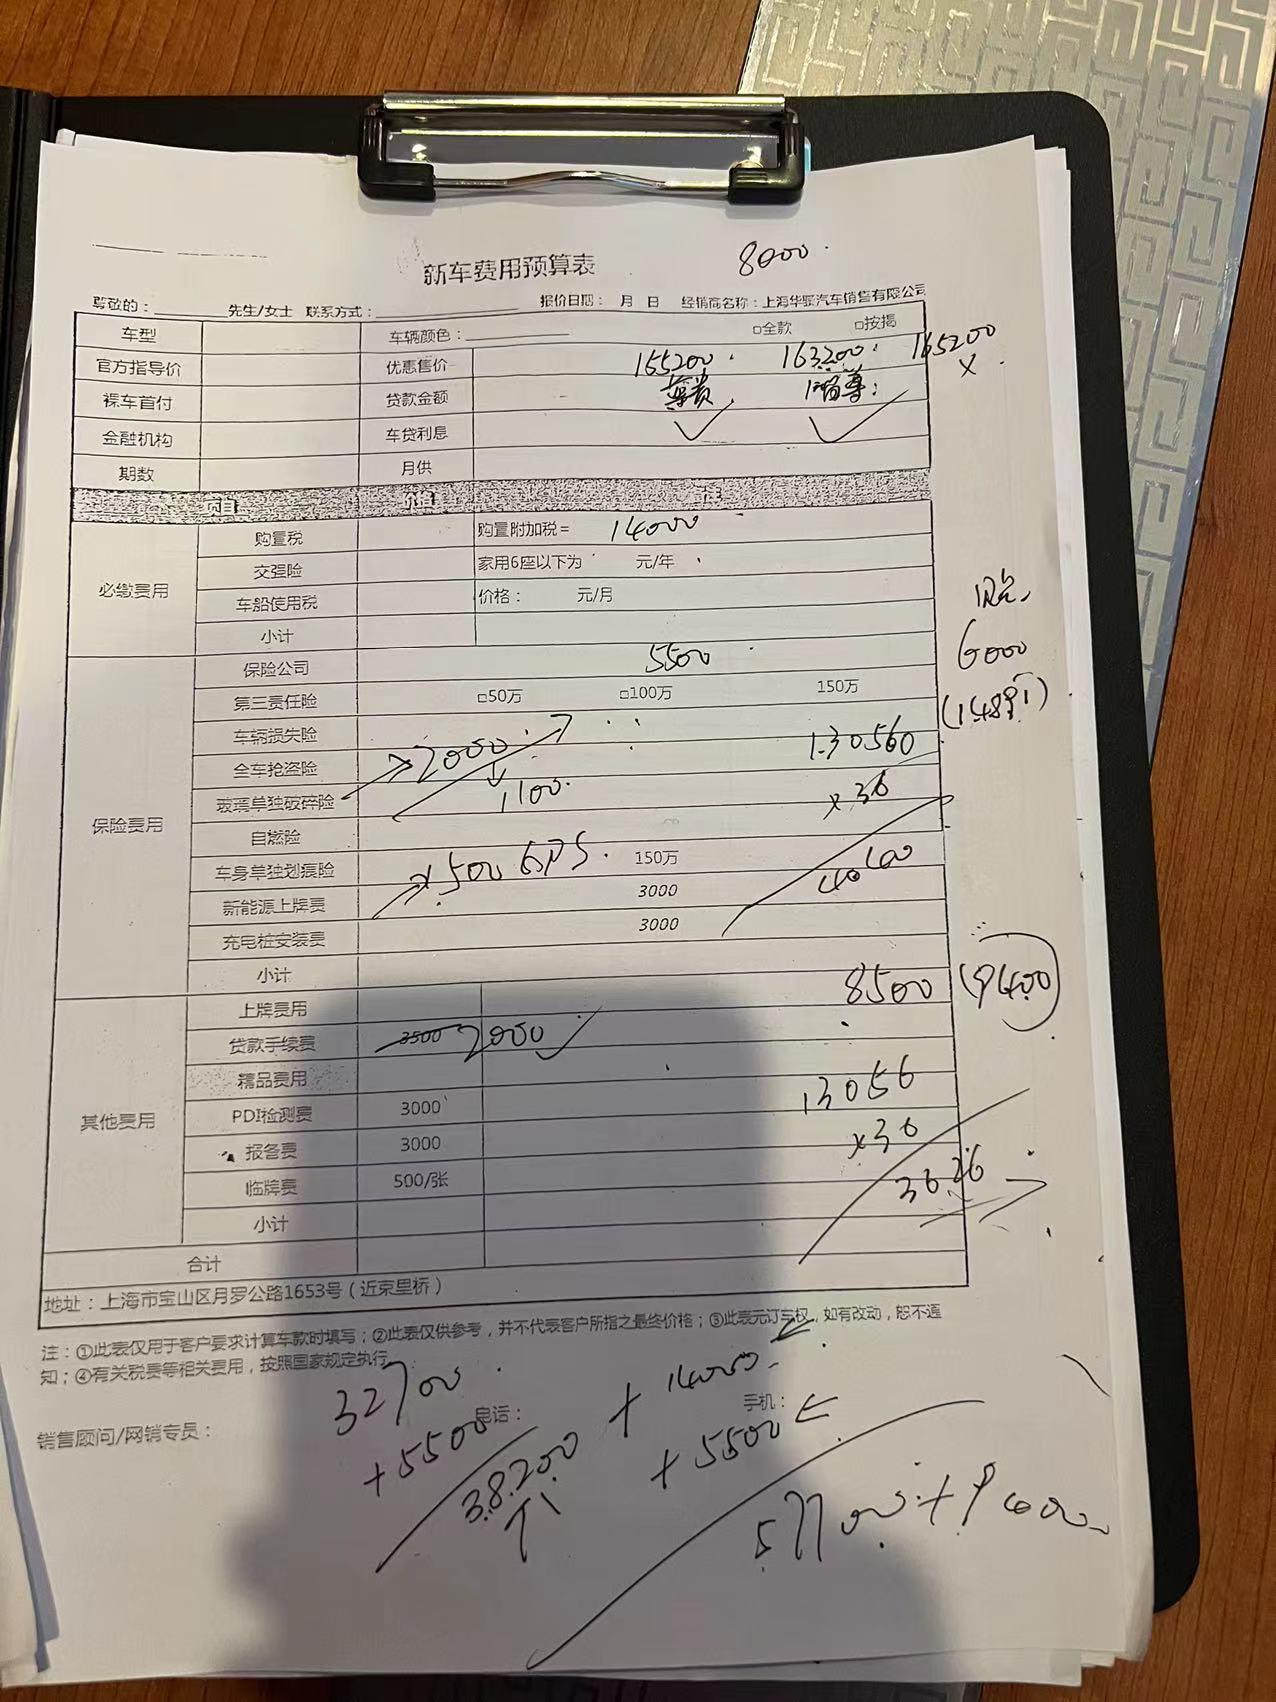 8000.
新车费用预算表
尊敬的：________先生/女士 联系方式：________ 报价日期： 月 日 经销商名称：上海华骏汽车销售有限公司
车型 车辆颜色：________ □全款 □按揭
官方指导价 优惠售价 155200. 163200. 165200 ×
裸车首付 贷款金额 尊贵
金融机构 车贷利息
期数 月供
项目
购置税 购置附加税= 14000
交强险 家用6座以下为 元/年
必缴费用
车船使用税 价格： 元/月
小计
6000
保险公司 5500
第三责任险 □50万 □100万 150万
(14891)
车辆损失险 2000 130560
全车抢盗险
玻璃单独破碎险 1100. ×36
保险费用
自燃险
车身单独划痕险 1500 GPS. 150万
新能源上牌费 3000
充电桩安装费 3000
小计
上牌费用 8500 (9400)
贷款手续费 3500 2000
精品费用
PDI检测费 3000 13056
其他费用
报备费 3000 ×36
临牌费 500/张 3626
小计
合计
地址：上海市宝山区月罗公路1653号（近京里桥）
注：①此表仅用于客户要求计算车款时填写；②此表仅供参考，并不代表客户所指之最终价格；③此表无订车权，如有改动，恕不通
知；④有关税费等相关费用，按照国家规定执行
32700 + 14000
销售顾问/网销专员： 电话： 手机：
+5500 +5500
38200
57700+9000